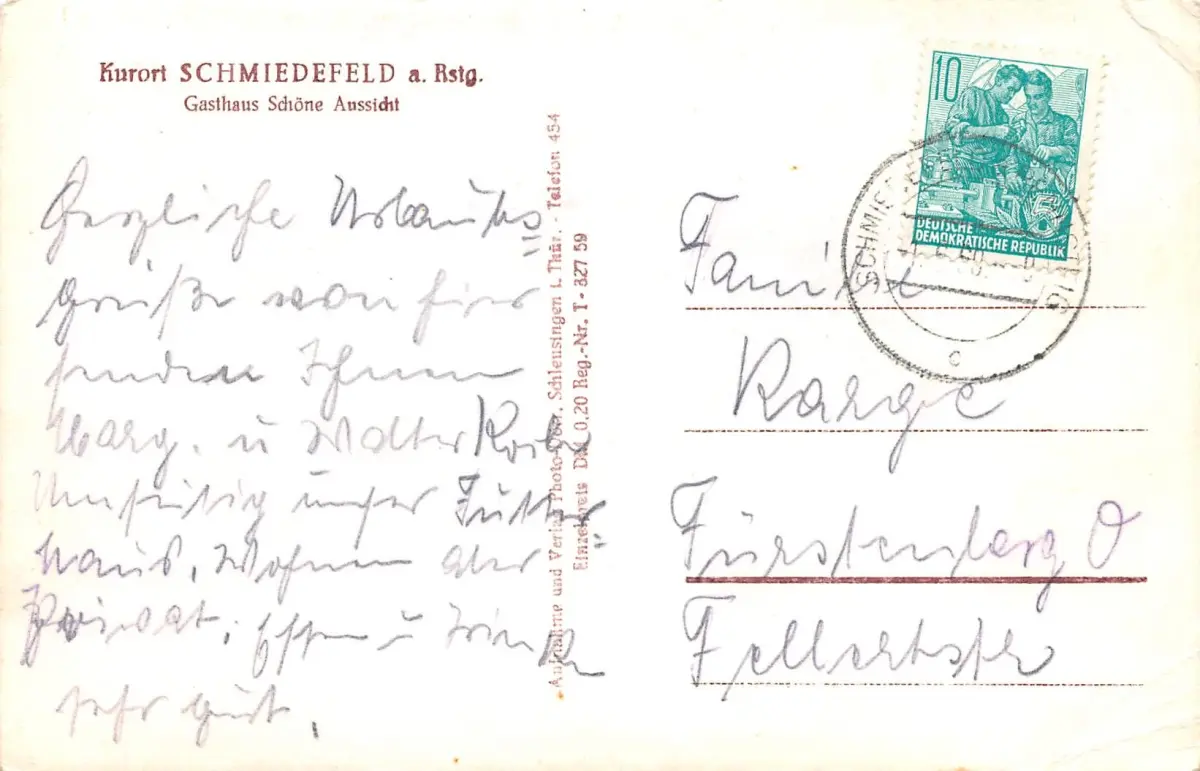 Kurort SCHMIEDEFELD a. Rstg.
Gasthaus Schöne Aussicht
Herzliche Urlaubs
Grüße von hier
senden Ihnen
Marg. u Walter
Umseitig unser Futter
haus, Wohnen aber
Privat, Essen u Trinken
sehr gut.
Aufnahme und Verlag Photo- Schleusingen i. Thür. - Telefon 454
Einzelpreis DM 0,20 Reg.-Nr. T - 327 59
10
DEUTSCHE
DEMOKRATISCHE REPUBLIK
5
c
Familie
Karge
Fürstenberg O